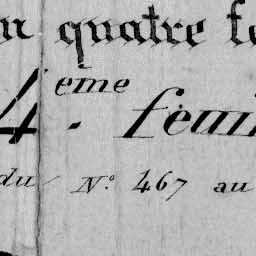 quatre
4.eme feui
du N.° 467 au